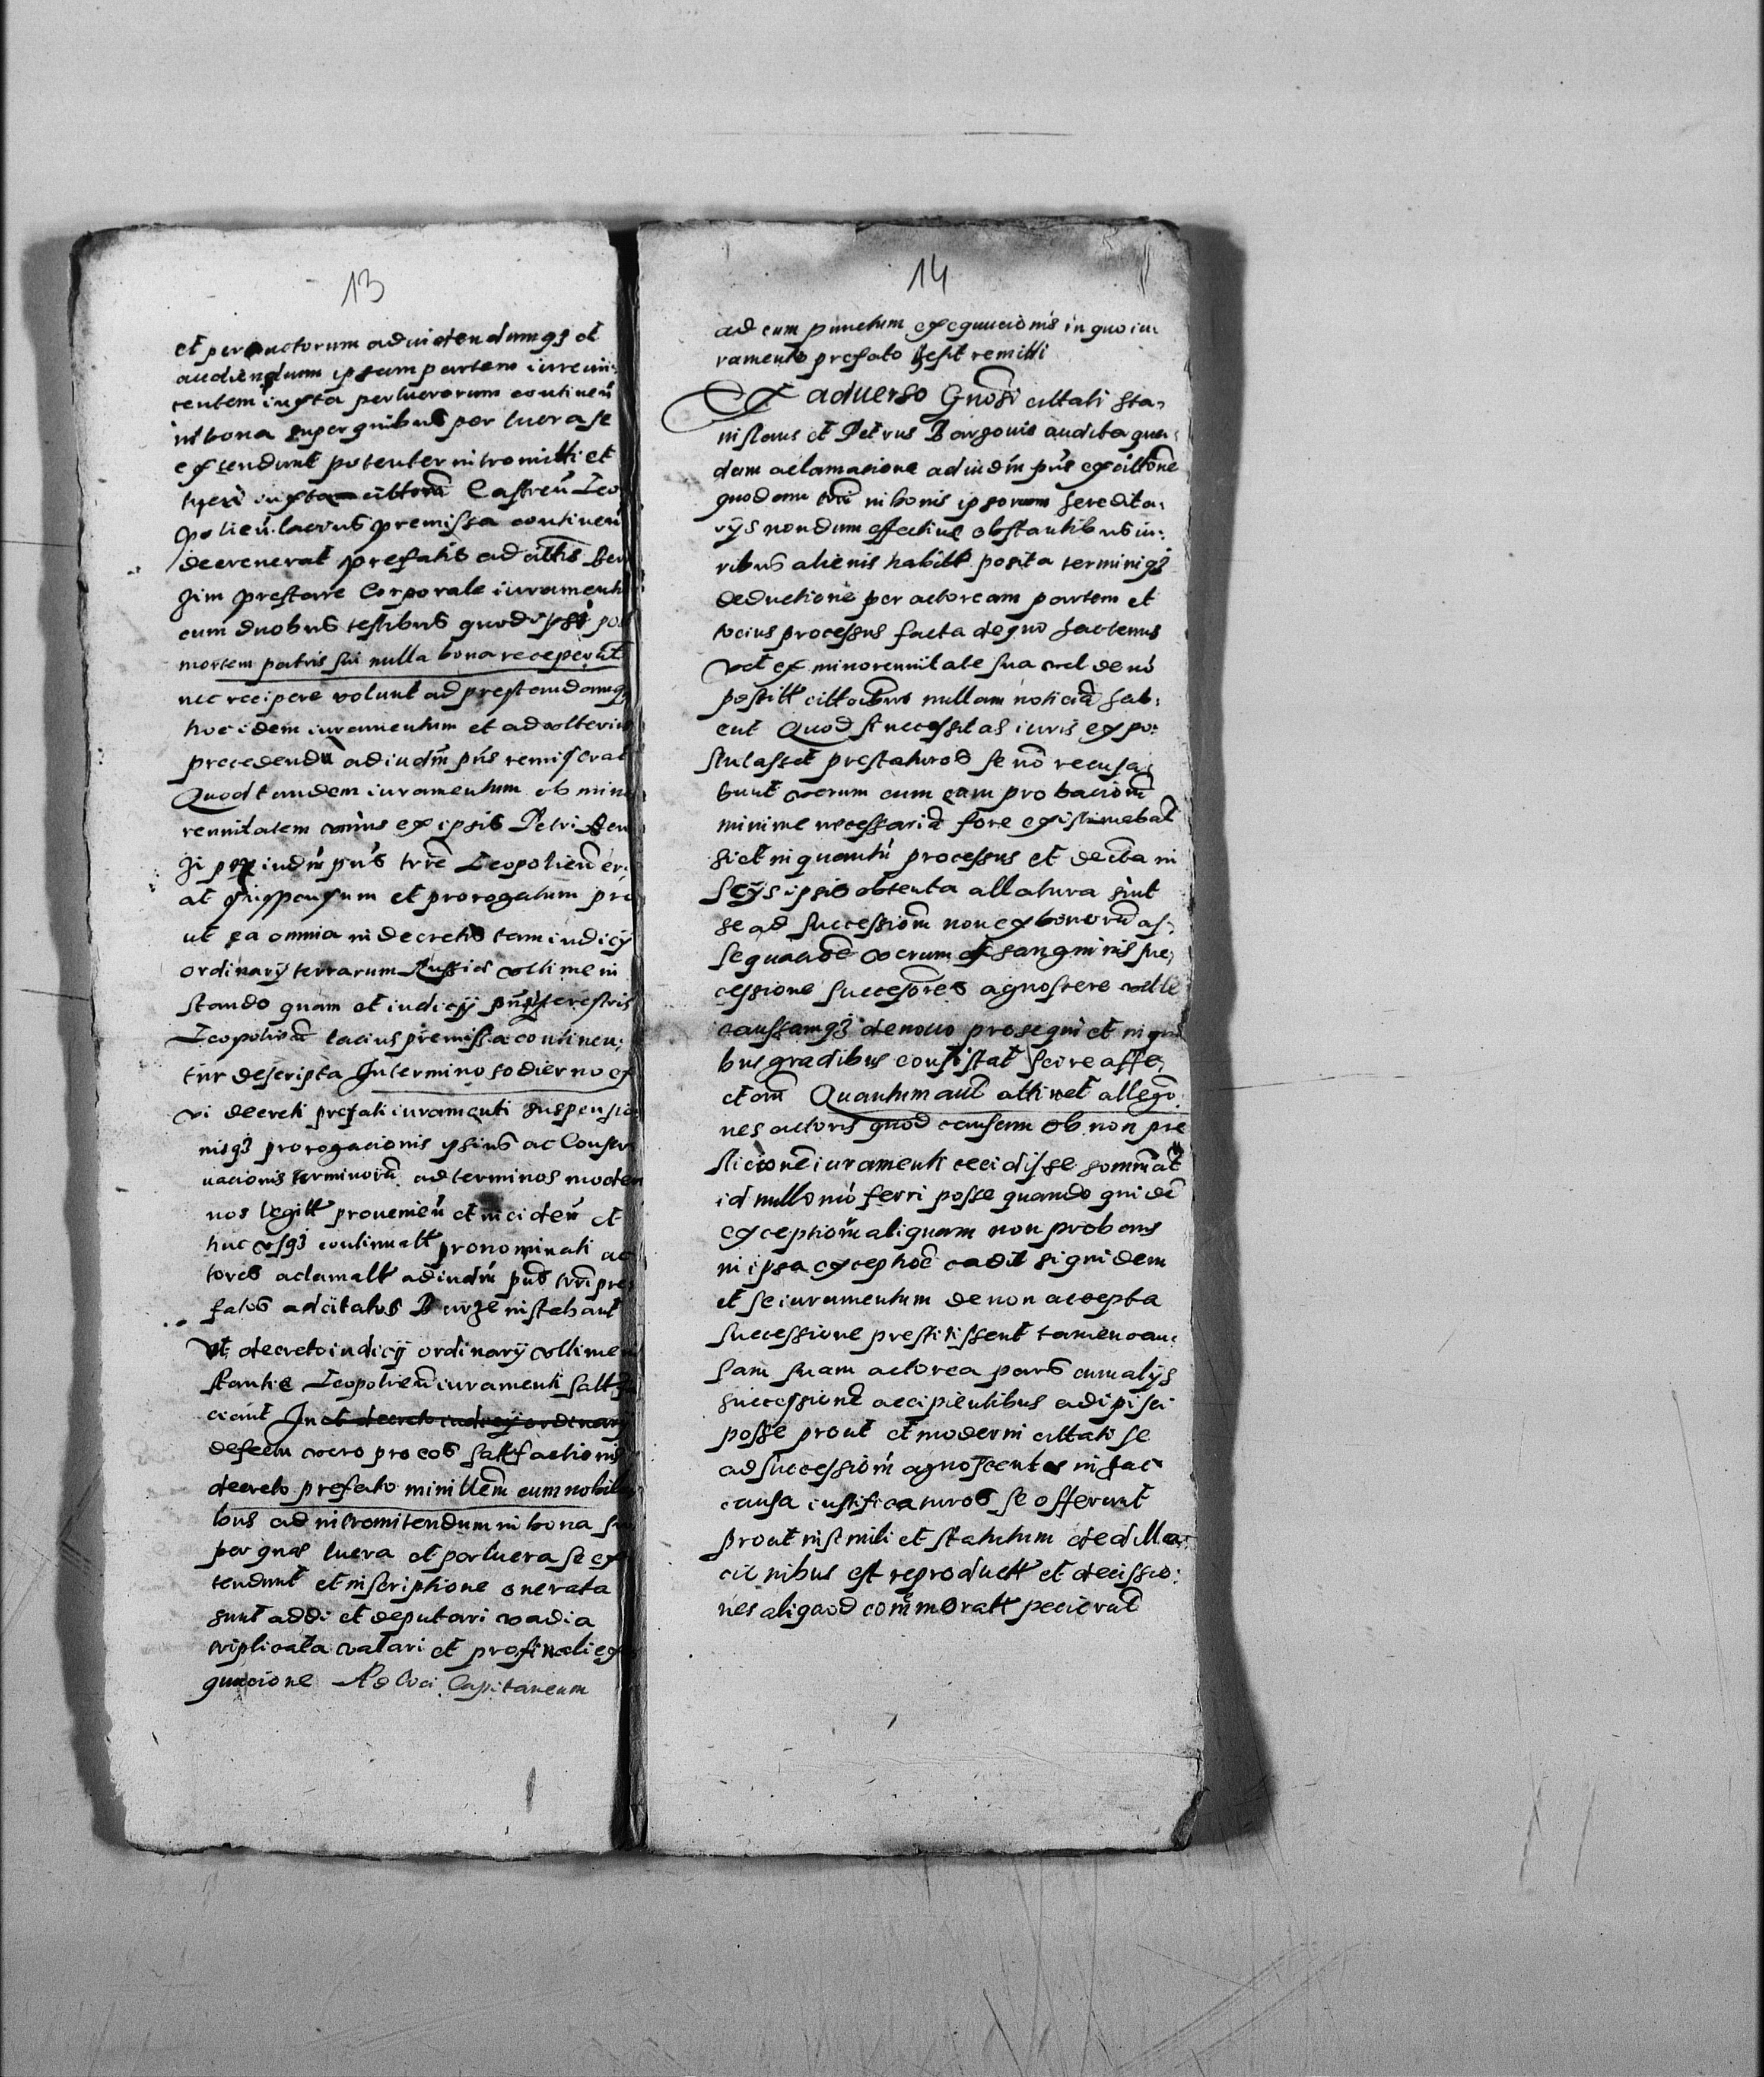 13
et per actorum ad videndumqȝ et
audiendum ipsam partem iure vin
centem iuxta perlucrorum continen̄
in bona super quibus per lucra se
extendunt potenter intromitti et
tueri iuxta Castren̄ Leo
polien̄ lacius premissa continen̄
decreuerat prefatis adcittis
prestare Corporale iurament
cum duobus testibus quod ipsi pos
mortem patris sui nulla bona receperunt
nec recipere volunt ad prestandumqȝ
hoc idem iuramentum et ad vlterius
precedendū ad iudm̄ pn̄s remiserat
Quod tandem iuramentum ob mino
rennitatem vnius ex ipsis Petri
per iudm̄ pn̄s trr̄e Leopolien̄ er
at suspensum et prorogatum pro
ut ea omnia in decretis tam iudicÿ
ordinarÿ terrarum Russie vltime in
stando quam et iudicÿ terestris
lacius premissa continen
tur descripta In termino hodierno ex
vi decreti prefati iuramenti suspensio
nisqȝ prorogacionis ipsius ac Conser
uacionis terminorū ad terminos moder
nos legitt̄ prouenien̄ et inciden̄ et
huc vsqȝ continuatt̄ pronominati ac
tores aclamatt̄ ad iudm̄ pn̄s trr̄i pre
fatos adcitatos instabant
Vt decreto iudicÿ ordinarÿ vltime in
stantie Leopolien̄ iuramenti
ciant In et decreto iudicÿ ordinarÿ
defectu vero pro eos satt̄factionis
decreto prefato minitt̄em cum nobili
bus ad intromitendum in bona su
per quas lucra et perlucra se ex
tendunt et inscriptione onerata
sunt addi et deputari vadia
triplicata vallari et pro finali exe
quucione Ad loci Capitaneum
14
ad eum punctum exequucionis in quo iu
ramento prefato remitti
Ex aduerso Gnōsi cittati Sta
nislaus et Petrus audita qua
dam aclamacione ad iudm̄ pn̄s ex citt̄one
quodam in bonis ipsorum heredita
rÿs nondum effectius obstantibus iu
ribus alienis habitt̄ posita terminiqȝ
deductione per actoream partem et
tocius processus facta de quo hactenus
vel ex minorennitate sua vel de nō
positt̄ citt̄aōibus nullam noticiā hab
ent Quod si necessitas iuris expo
stulasset prestaturos se nō recusa
bunt verum cum eam probacionē
minime necessariā fore existimabat
si et in quantū processus et decreta in
ipsis obtenta allatura sint
se ad successionē non ex bonorū as
sequucione verum ex sanguinis suc
cessione succesōres agnoscere velle
caussamqȝ denouo prosequi et in qui
bus gradibus consistat scire affe
ctare Quantum aut̄ attinet allegō
nes actoris quod causam ob non pre
sticionē iuramenti cecidisse
id nullo mō ferri posse quando quidē
exceptionē aliquam non probans
in ipsa exceptiōe cadit siquidem
et si iuramentum de non accepta
successione prestitissent tamen cau
sam suam actorea pars cum alÿs
successionē accipientibus adipisci
posse prout et moderni cittati se
ad successionē agnoscentes in hac
causa iustificaturos se offerunt
prout in simili et statutum
est reproductt̄ et decissio
nes aliquod com̄moratt̄ pecierunt